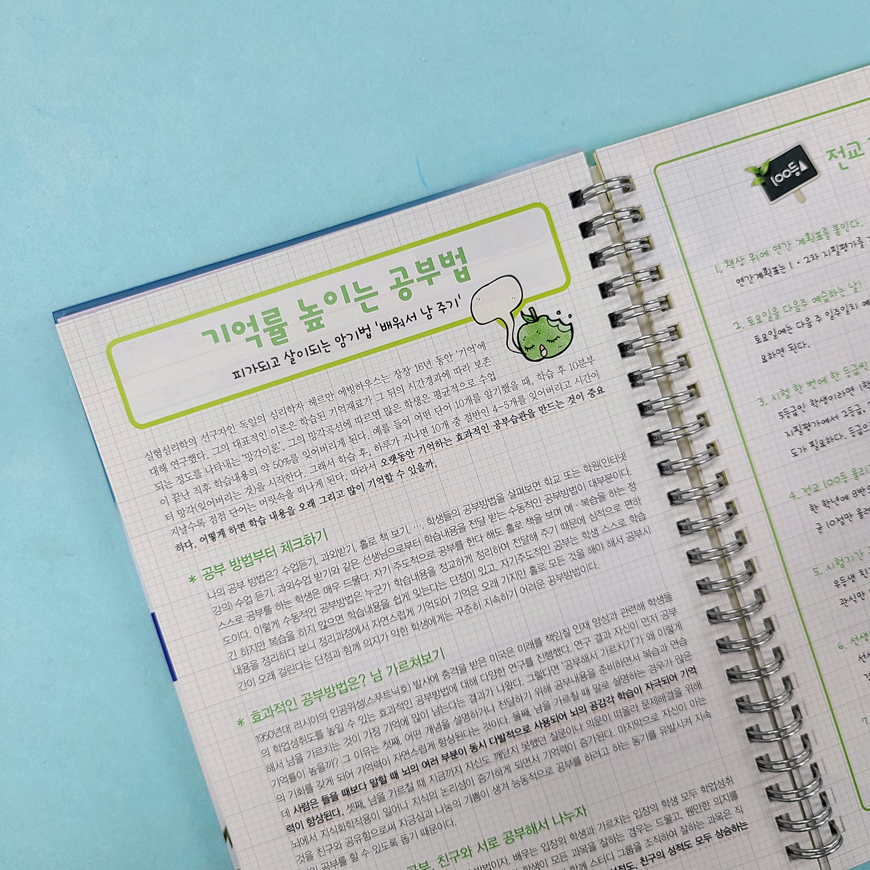 기억률 높이는 공부법
피가되고 살이되는 암기법 '배워서 남 주기'
실험심리학의 선구자인 독일의 심리학자 헤르만 에빙하우스는 장장 16년 동안 '기억'에
대해 연구했다. 그의 대표적인 이론은 학습된 기억재료가 그 뒤의 시간경과에 따라 보존
되는 정도를 나타내는 '망각이론'. 그의 망각곡선에 따르면 많은 학생은 평균적으로 수업
이 끝난 직후 학습내용의 약 50%를 잊어버리게 된다. 예를 들어 어떤 단어 10개를 암기했을 때, 학습 후 10분부
터 망각(잊어버리는 것)을 시작한다. 그래서 학습 후, 하루가 지나면 10개 중 절반인 4~5개를 잊어버리고 시간이
지날수록 점점 단어는 머릿속을 떠나게 된다. 따라서 오랫동안 기억하는 효과적인 공부습관을 만드는 것이 중요
하다. 어떻게 하면 학습 내용을 오래 그리고 많이 기억할 수 있을까.
* 공부 방법부터 체크하기
나의 공부 방법은? 수업듣기, 과외받기, 홀로 책 보기, … 학생들의 공부방법을 살펴보면 학교 또는 학원(인터넷
강의) 수업 듣기, 과외수업 받기와 같은 선생님으로부터 학습내용을 전달 받는 수동적인 공부방법이 대부분이다.
스스로 공부를 하는 학생은 매우 드물다. 자기 주도적으로 공부를 한다 해도 홀로 책을 보며 예·복습을 하는 정
도이다. 이렇게 수동적인 공부방법은 누군가 학습내용을 정교하게 정리하여 전달해 주기 때문에 심적으로 편하
긴 하지만 복습을 하지 않으면 학습내용을 쉽게 잊는다는 단점이 있고, 자기주도적인 공부는 학생 스스로 학습
내용을 정리하다 보니 정리과정에서 자연스럽게 기억되어 기억은 오래 가지만 홀로 모든 것을 해야 해서 공부시
간이 오래 걸린다는 단점과 함께 의지가 약한 학생에게는 꾸준히 지속하기 어려운 공부방법이다.
* 효과적인 공부방법은? 남 가르쳐보기
1950년대 러시아의 인공위성(스푸트닉호) 발사에 충격을 받은 미국은 미래를 책임질 인재 양성과 관련해 학생들
의 학업성취도를 높일 수 있는 효과적인 공부방법에 대해 다양한 연구를 진행했다. 연구 결과 자신이 먼저 공부
해서 남을 가르치는 것이 가장 기억에 많이 남는다는 결과가 나왔다. 그렇다면 '공부해서 가르치기'가 왜 이렇게
기억률이 높을까? 그 이유는 첫째, 어떤 개념을 설명하거나 전달하기 위해 공부내용을 준비하면서 복습과 연습
의 기회를 갖게 되어 기억력이 자연스럽게 향상된다는 것이다. 둘째, 남을 가르칠 때 말로 설명하는 경우가 많은
데 사람은 들을 때보다 말할 때 뇌의 여러 부분이 동시 다발적으로 사용되어 뇌의 공감각 학습이 자극되어 기억
력이 향상된다. 셋째, 남을 가르칠 때 지금까지 자신도 깨닫지 못했던 질문이나 의문이 떠올라 문제해결을 위해
뇌에서 지식화학작용이 일어나 지식의 논리성이 증가하게 되면서 기억력이 증가된다. 마지막으로 자신이 아는
것을 친구와 공유함으로써 자긍심과 나눔의 기쁨이 생겨 능동적으로 공부를 하려고 하는 동기를 유발시켜 지속
공부를 할 수 있도록 돕기 때문이다.
공부, 친구와 서로 공부해서 나누자
방법이자, 배우는 입장의 학생과 가르치는 입장의 학생 모두 학업성취
학생이 모든 과목을 잘하는 경우는 드물고, 웬만한 의지를
함께 스터디 그룹을 조직하여 잘하는 과목은 직
성적도, 친구의 성적도 모두 상승하는
100등
전교
1. 책상 위에 연간 계획표를 붙인다.
연간계획표는 1·2차 지필평가를
2. 토요일을 다음주 예습하는 날!
토요일에는 다음 주 일주일치 예
요하면 된다.
3. 시험 한 번에 한 등급씩
5등급인 학생이라면 1학
지필평가에서 2등급,
도가 필요하다. 등급으
4. 전교 100등 올리
한 학년에 8반
균 10점만 올려
5. 시험기간
우등생 친구
관식만
6. 선생
선생
7.